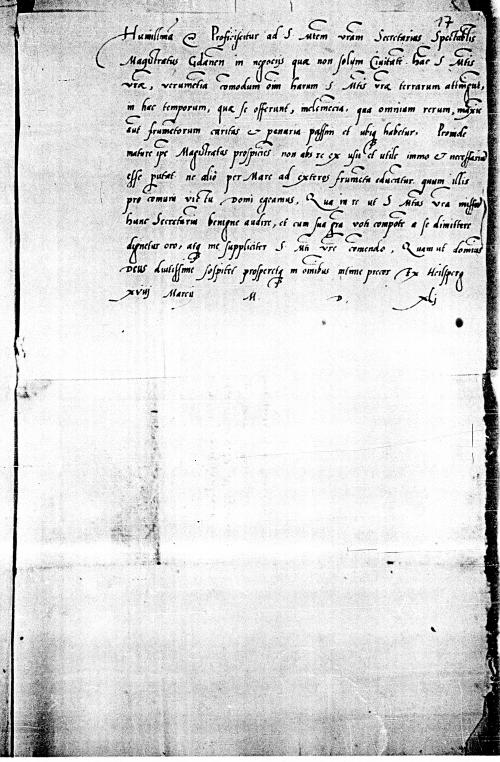 17
Humilima &. Proficiscitur ad S Mtem vram Secretarius Spectabilis
Magistratus Gdanen in negocijs quae non solum Ciuitati hac S Mtis
vrae, verumetia comodum oim harum S Mtis vrae terrarum attingut,
in hac temporum, quae se offerunt, inclemecia. qua omnium rerum, maxie
aut frumetorum caritas & penuria passim et ubiq habetur. Proinde
mature ipe Magistratus prospicies non abs re ex usu et utile immo & necessariu
esse putat ne alio per Mare ad exteros frumeta educatur. quum illis
pro comuni victu Domi egeamus, Qua in re ut S Mtas vra missu
hunc Secretariu benigne audire, et cum sua gra voti compote a se dimittere
dignetur oro, atq me suppliciter S Mti vre comendo, Quam ut dominus
Deus diutissime sospite prospereq in omibus

precor Ex Heilsperg
xviij Marcij M. D. xlj